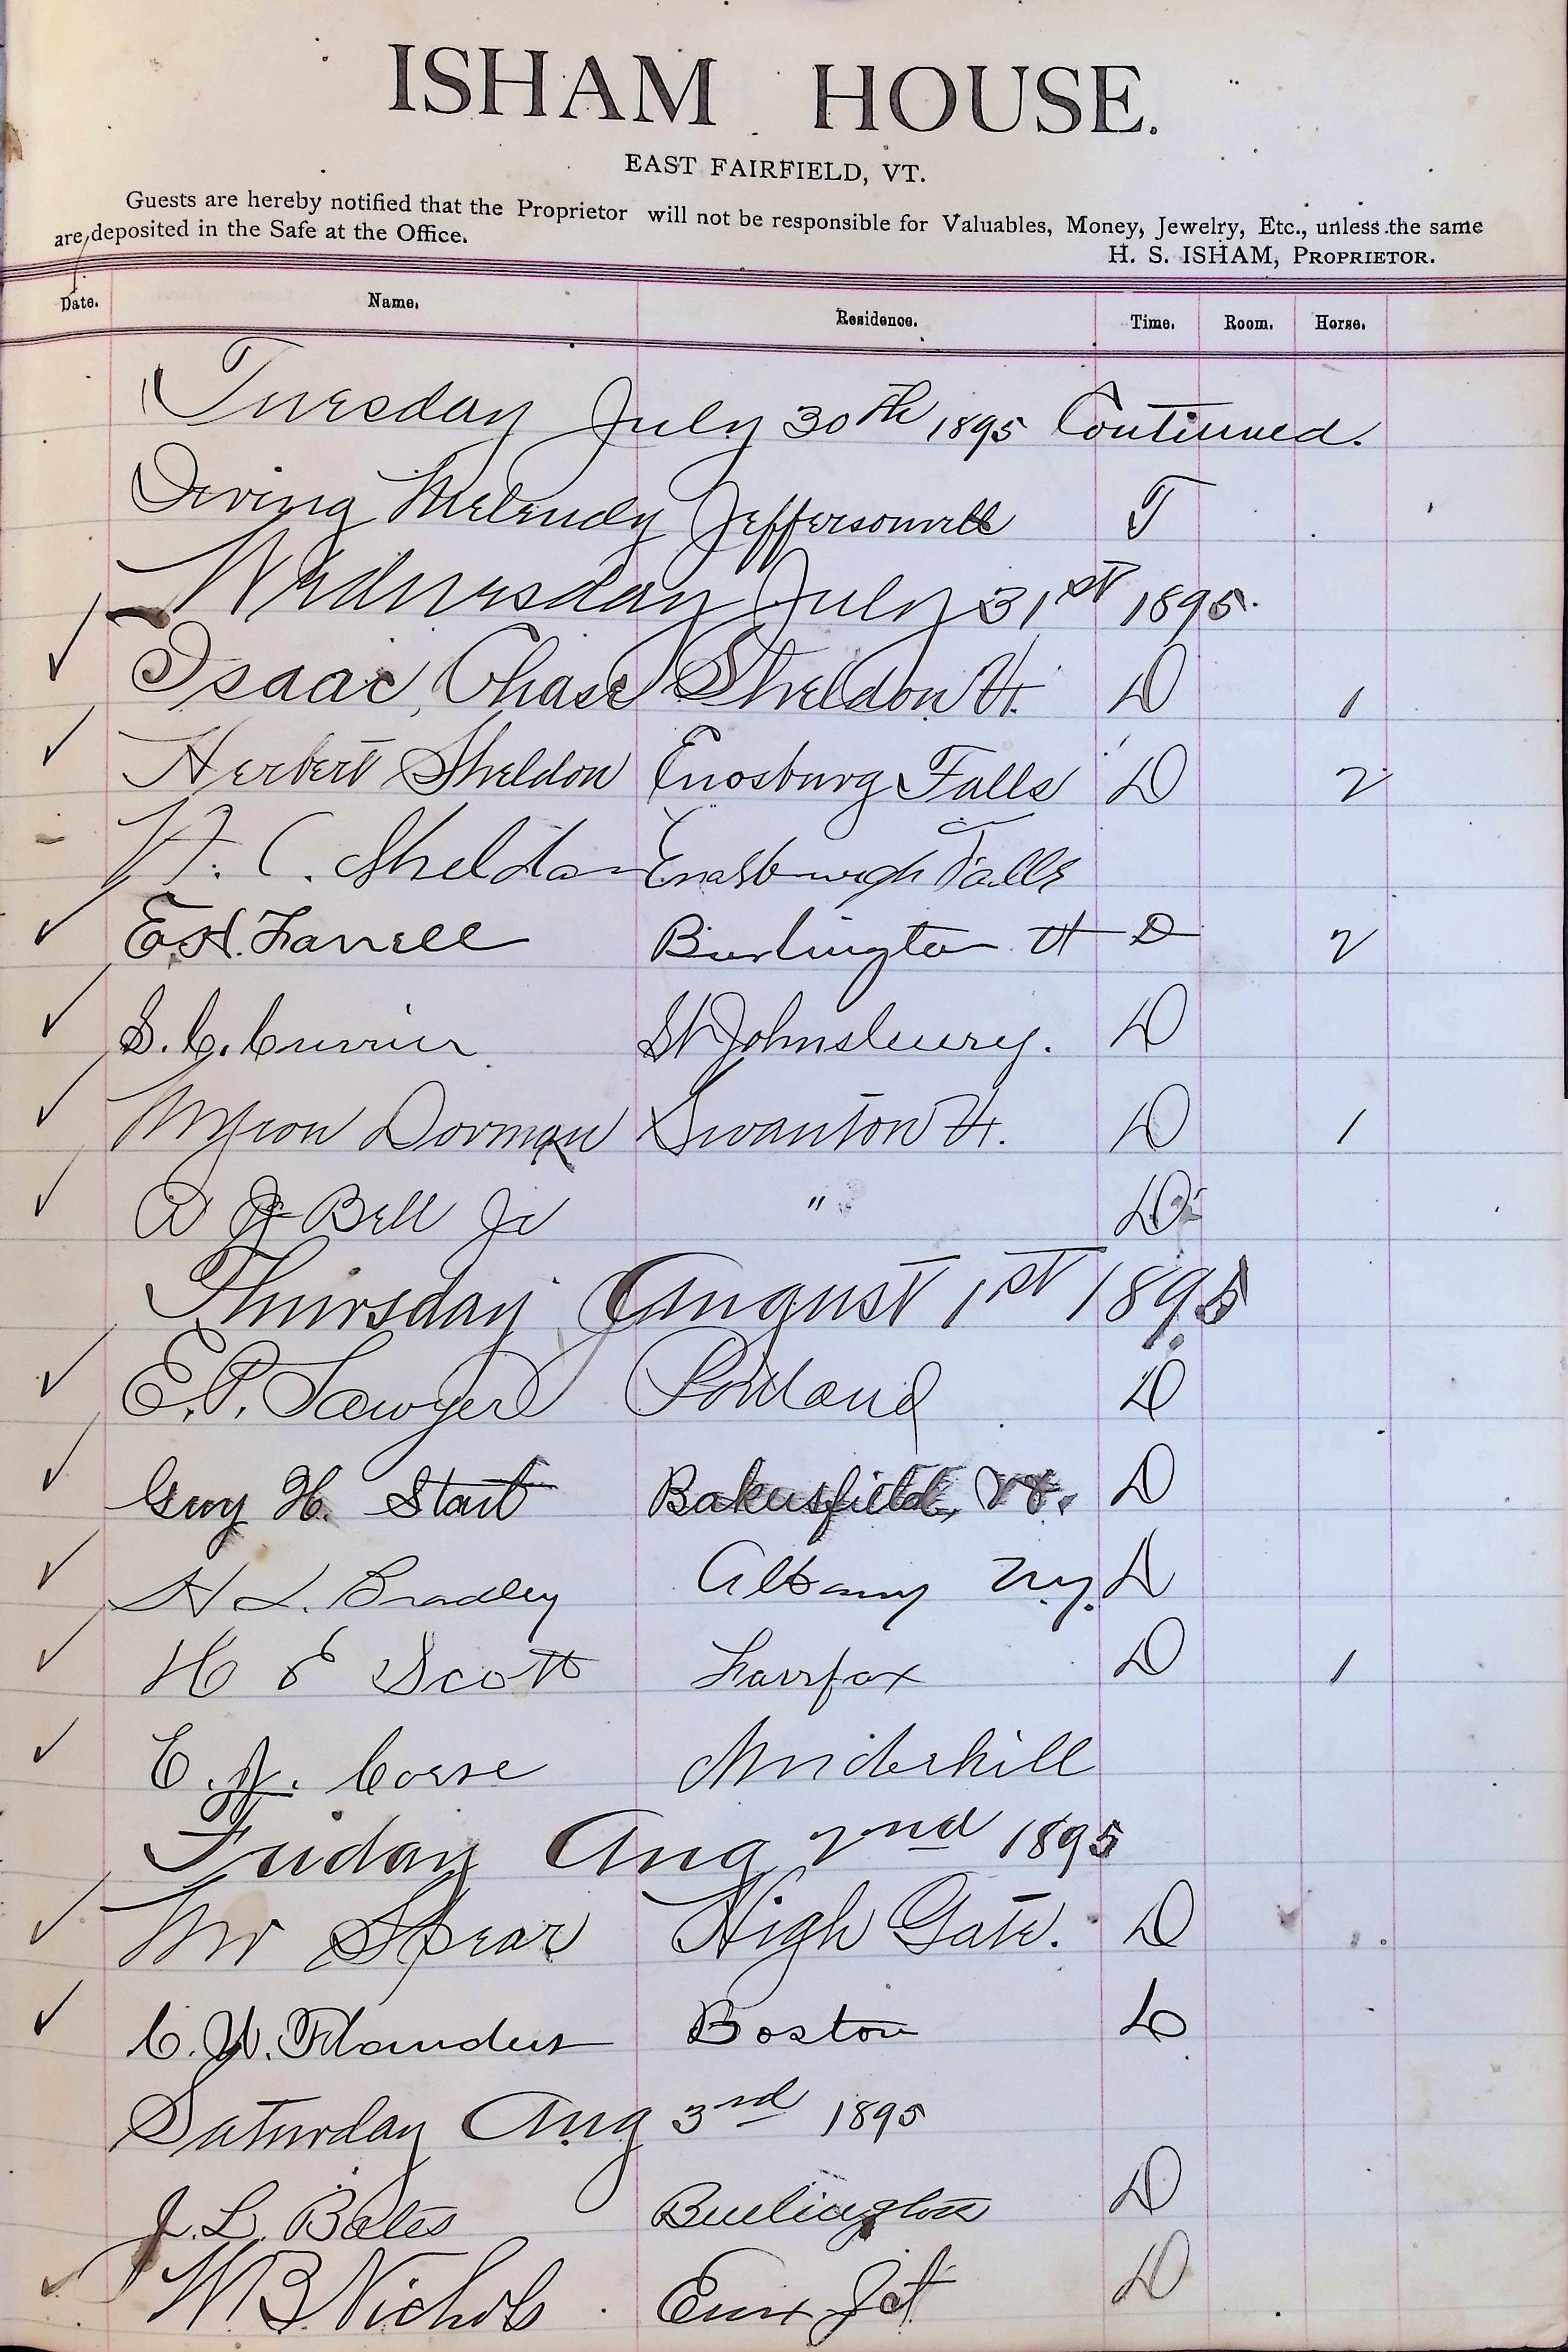 ISHAM HOUSE.
EAST FAIRFIELD, VT.
Guests are hereby notified that the Proprietor will not be responsible for Valuables, Money, Jewelry, Etc., unless the same
are deposited in the Safe at the Office.
H. S. ISHAM, PROPRIETOR.
Date. Name. Residence. Time. Room. Horse.
Tuesday July 30th 1895 Continued.
Irving Melendy Jeffersonville T
Wednesday July 31st 1895.
✓ Isaac Chase Sheldon Vt. D 1
✓ Herbert Sheldon Enosburg Falls D 2
F. C. Sheldon Enosburgh Falls
✓ E. H. Farrell Burlington Vt D 2
✓ S. C. Currier St Johnsbury. D
✓ Myron Dorman Swanton Vt. D 1
✓ Bell Jr " D
Thursday August 1st 1895
✓ E. P. Sawyer Portland D
✓ Guy H. Start Bakersfield, Vt. D
✓ H L. Bradley Albany N.Y. D
✓ H E Scott Fairfax D 1
✓ E. J. Corse Underhill
Friday Aug 2nd 1895
✓ Mr Spear High Gate. D
✓ C. W. Flanders Boston L
Saturday Aug 3rd 1895
J. L. Bates Burlington D
✓ W B Nichols Essex Jct D